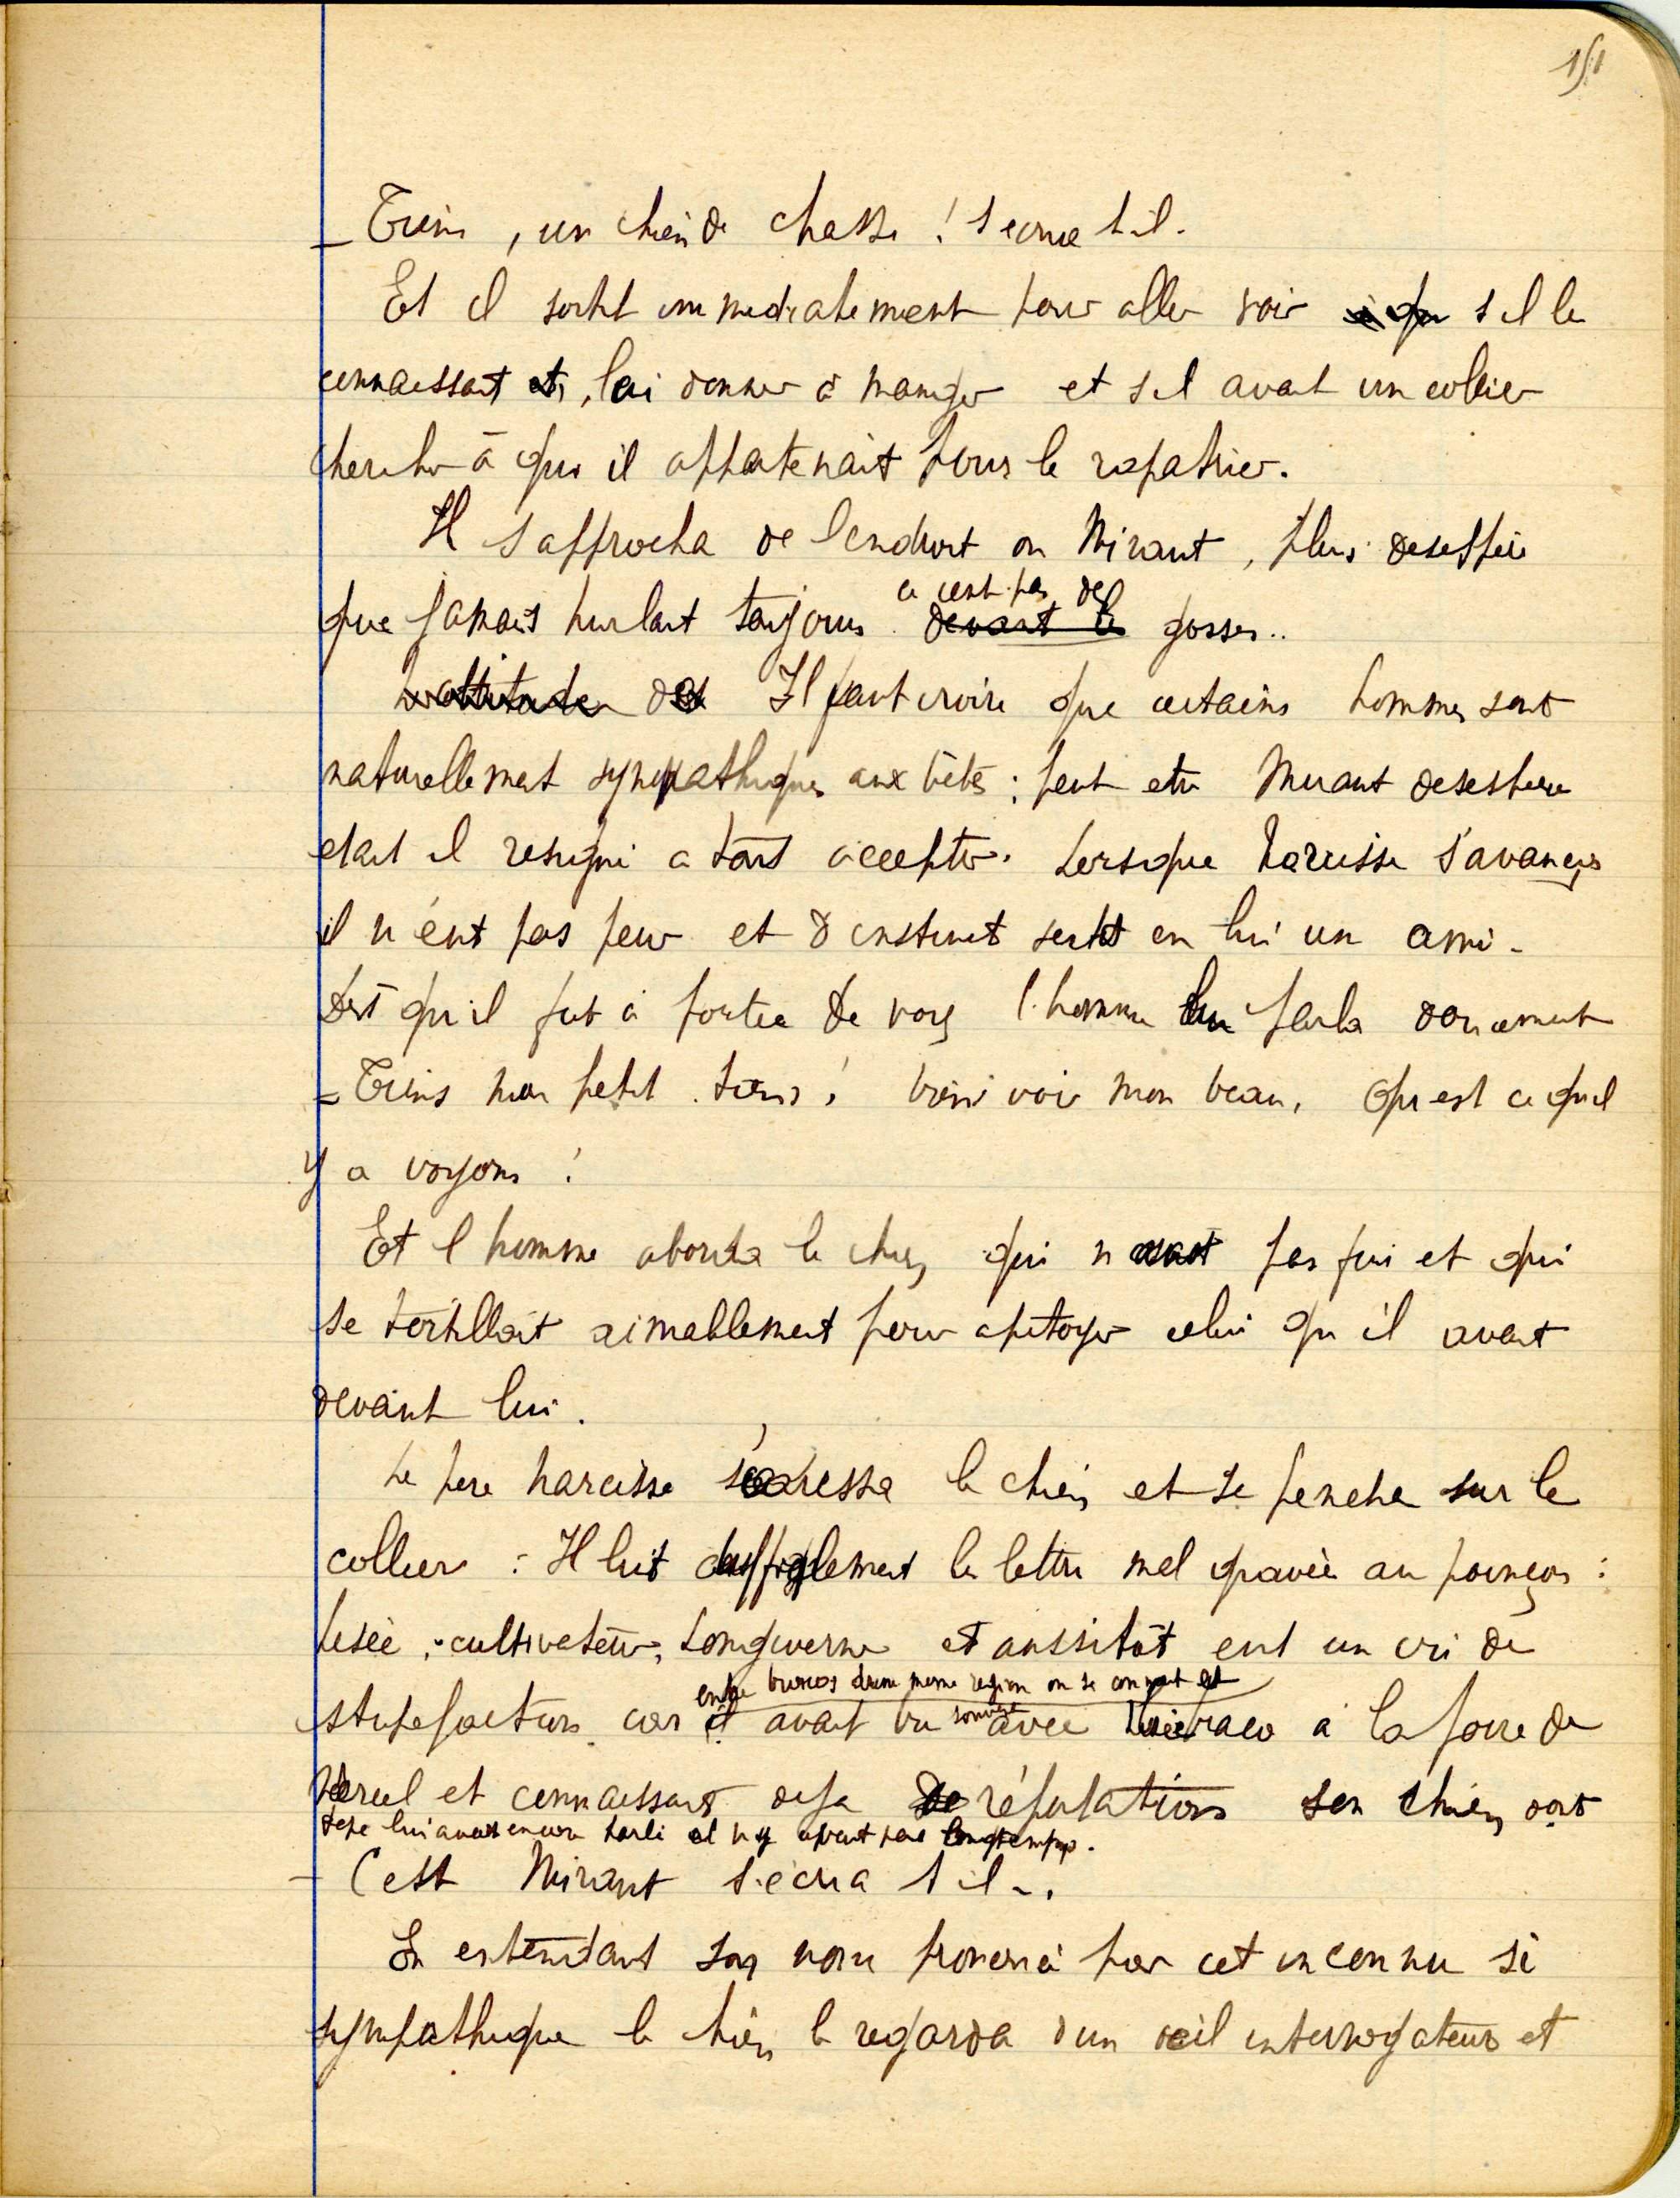 151
_ Tiens, un chien de chasse ! s ecrie t il.
Et il sortit immediatement pour aller voir s il le
connaissait et, lui donner à manger et s il avait un collier
chercher à qui il appartenait pour le rapatrier.
Il s approcha de l endroit ou Miraut, plus desespéré
ce n'est pas des
que jamais hurlait toujours. devant les gosses..
Il faut croire que certains hommes sont
naturellement sympathiques aux bêtes ; peut etre Miraut desespere
etait il resigné a tout accepter. Lorsque Narcisse s'avança
il n'eut pas peur et d instinct sentit en lui un ami.
Dès qu il fut à portée de voix l'homme lui parla doucement
- Tiens mon petit. tiens ! viens voir mon beau. Qu est ce qu il
y a voyons !
Et l homme aborda le chien qui n avait pas fui et qui
se tortillait aimablement pour apitoyer celui qu il avait
devant lui.
Le pere Narcisse caressa le chien et se pencha sur le
collier : Il lut la lettre mal gravée au poinçon :
Lisée, cultivateur, Longeverne et aussitôt eut un cri de
entre d'une meme region on se connait et
stupefaction car il avait bu souvent avec à la foire de
Vercel et connaissait deja de réputation son chien dont
Pépé lui avait encore parlé il n y avait pas longtemps.
- C est Miraut s'écria t il..
En entendant son nom prononcé par cet inconnu si
sympathique le chien le regarda d un oeil interrogateur et